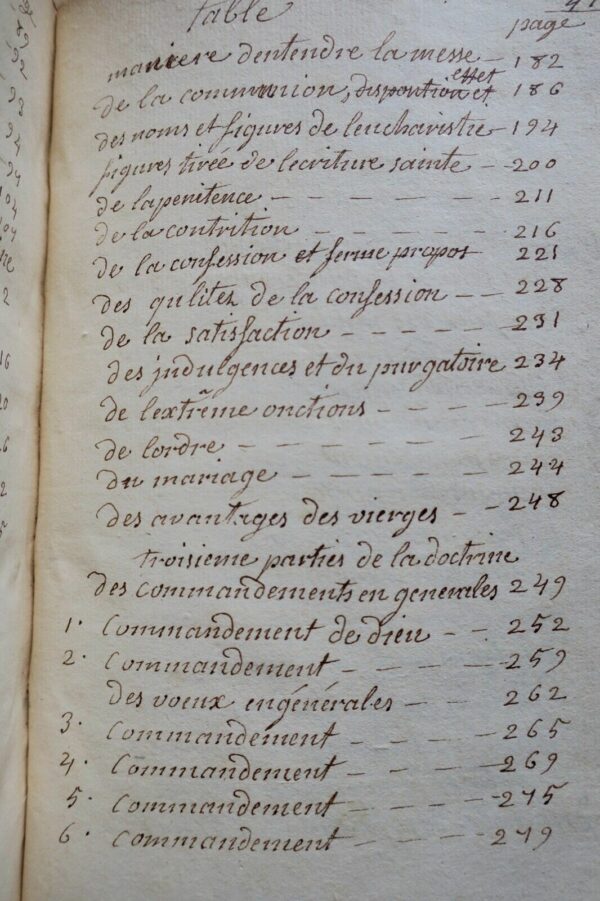 table
page
maniere dentendre la messe — 182
effet
de la communion, disposition et 186
des noms et figures de leucharistie — 194
figures tirée de lecriture sainte — 200
de lapenitence — — — — — 211
de la contrition — — — — 216
de la confession et ferme propos 221
des qulitez de la confession — — 228
de la satisfaction — — — — 231
des jndulgences et du purgatoire 234
de lextrême onctions — — — 239
de lordre — — — — — — 243
du mariage — — — — — 244
des avantages des vierges — — 248
troisieme parties de la doctrine
des commandements en generales 249
1. commandement de dieu — — 252
2. commandement — — — — 259
des voeux engénérales — — 262
3. commandement — — — — 265
4. commandement — — — — 269
5. commandement — — — — 275
6. commandement — — — — 279